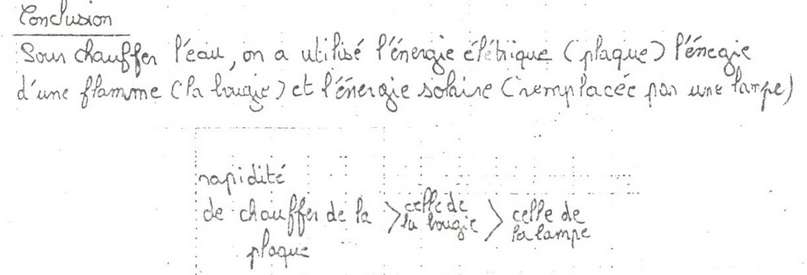 Conclusion
Pour chauffer l'eau, on a utilisé l'énergie élétrique (plaque) l'énegie
d'une flamme (la bougie) et l'énergie solaire (remplacée par une lampe)
rapidité
de chauffer de la > celle de la bougie > celle de la lampe
plaque